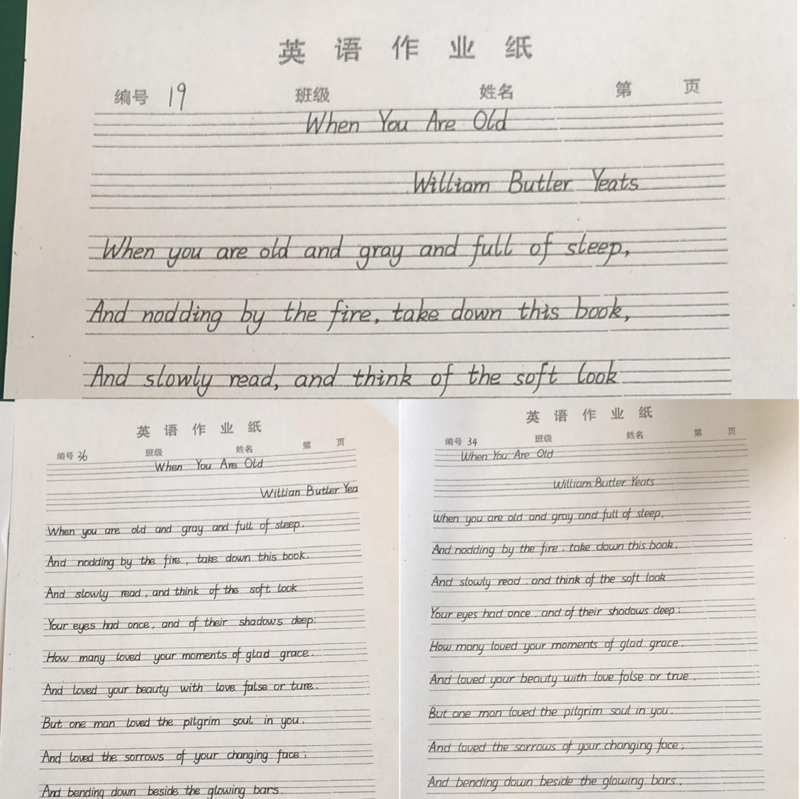 英语作业纸
编号 19 班级 姓名 第 页
When You Are Old
William Butler Yeats
When you are old and gray and full of sleep,
And nodding by the fire, take down this book,
And slowly read, and think of the soft look
英语作业纸
编号 36 班级 姓名 第 页
When You Are Old
Willian Butler Yea
When you are old and gray and full of sleep.
And nodding by the fire, take down this book.
And slowly read, and think of the soft look
Your eyes had once, and of their shadows deep:
How many loved your moments of glad grace.
And loved your beauty with love false or ture.
But one man loved the pilgrim soul in you.
And loved the sorrows of your changing face;
And bending down beside the glowing bars.
英语作业纸
编号 34 班级 姓名 第 页
When You Are Old
William Butler Yeats
When you are old and gray and full of sleep,
And nodding by the fire, take down this book,
And slowly read, and think of the soft look
Your eyes had once, and of their shadows deep;
How many loved your moments of glad grace.
And loved your beauty with love false or true.
But one man loved the pilgrim soul in you.
And loved the sorrows of your changing face;
And bending down beside the glowing bars,